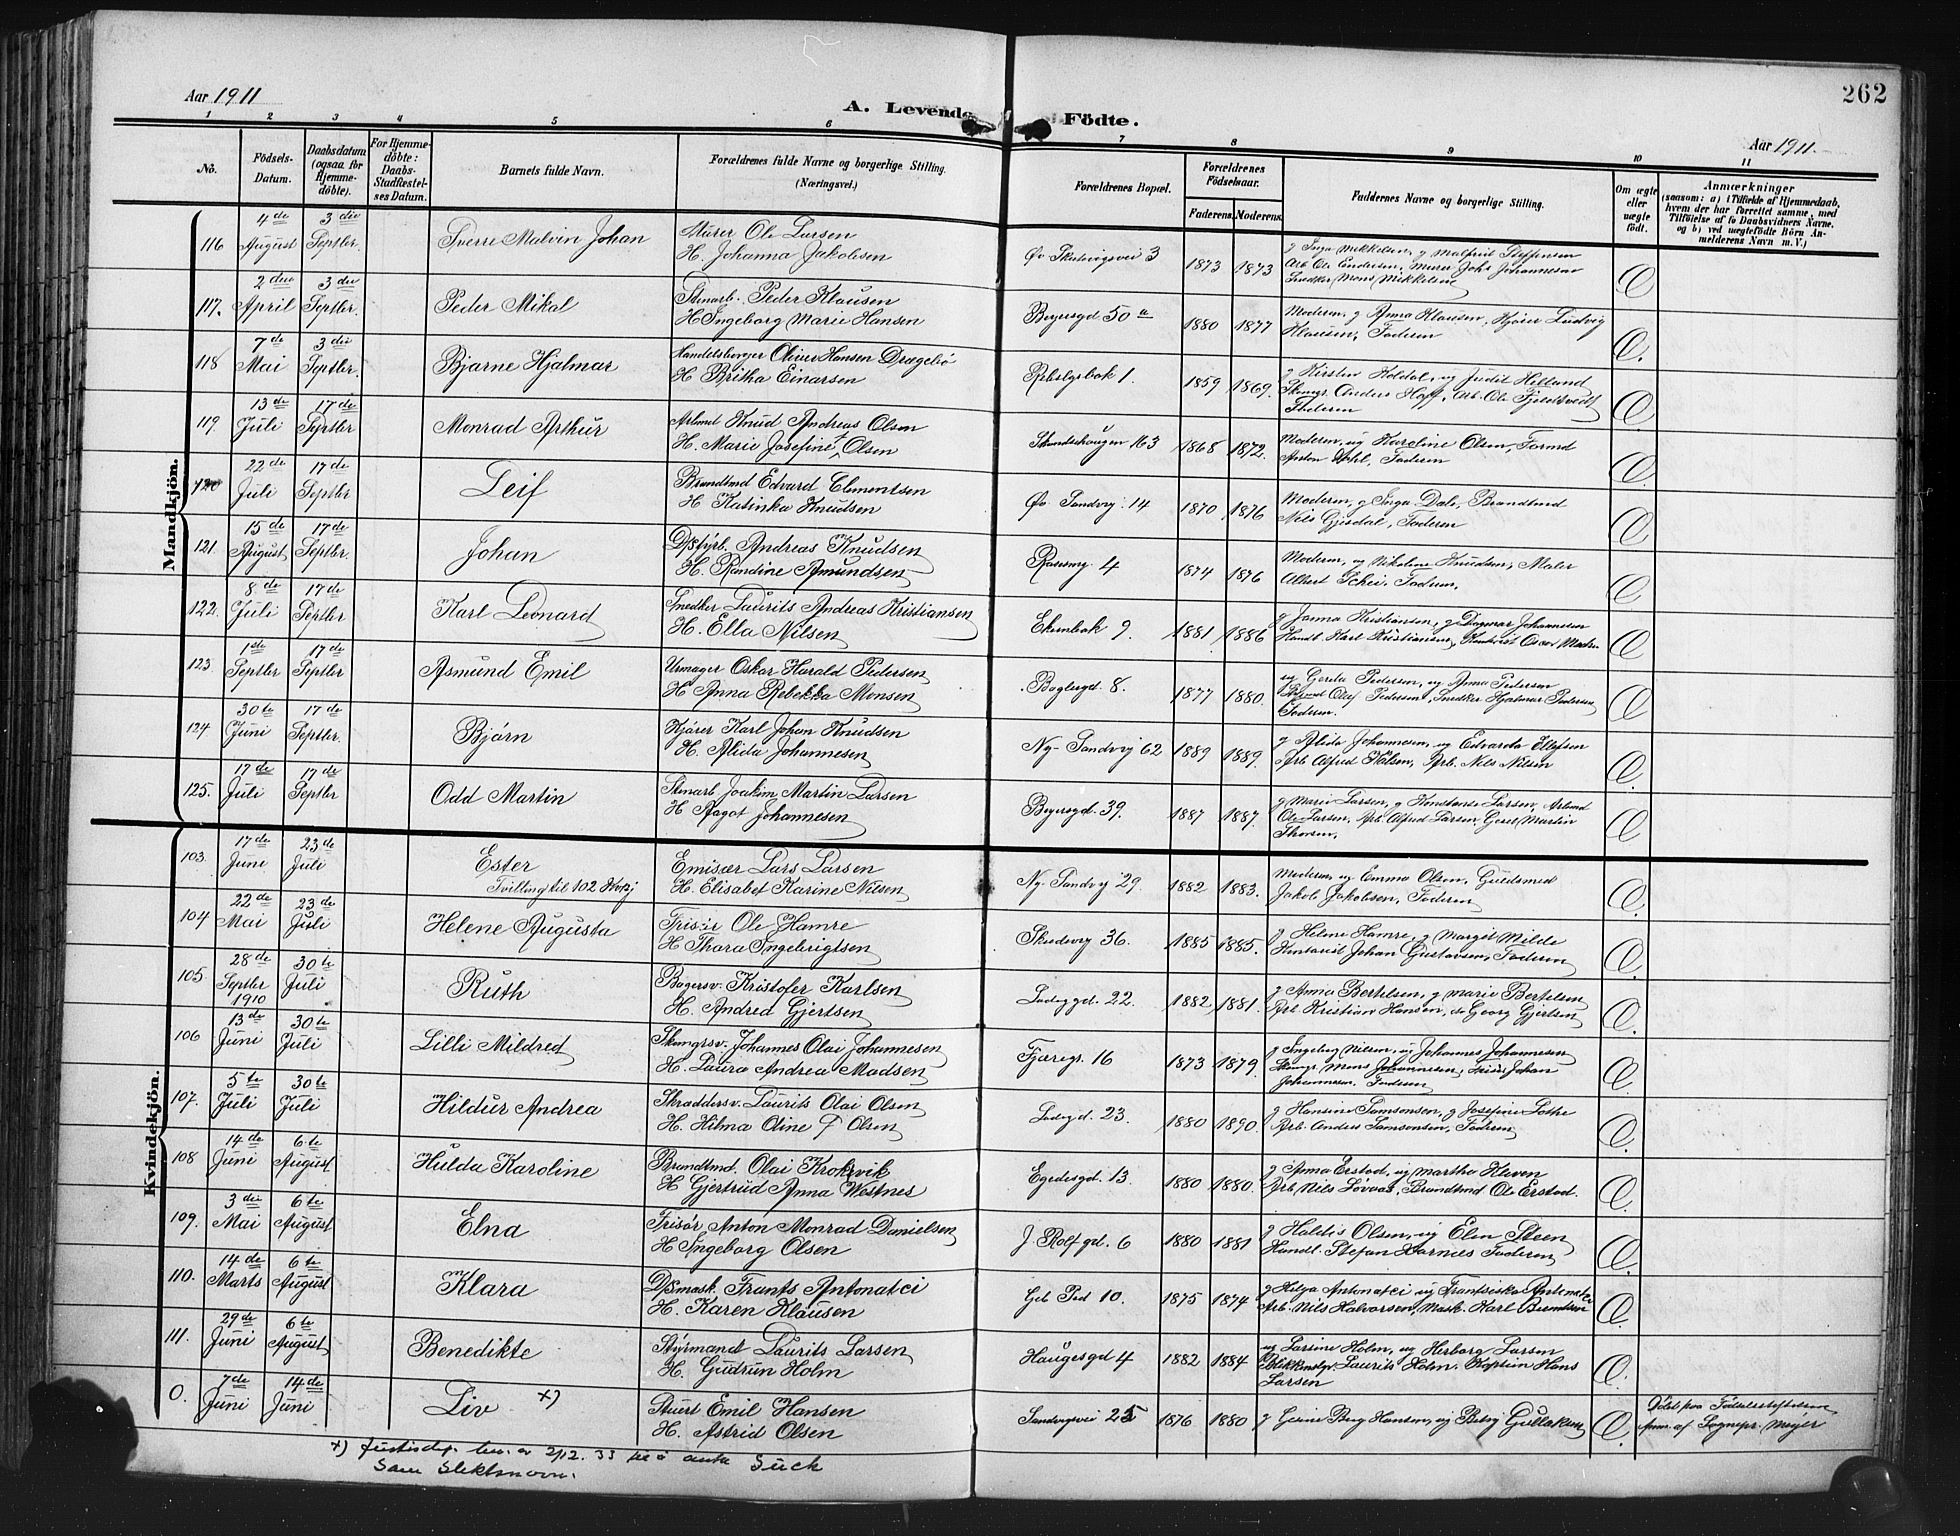 262
Aar 1911
A. Levende Födte.
Aar 1911
1 2 3 4 5 6 7 8 9 10 11
No.
Födsels-Datum.
Daabsdatum (ogsaa for Hjemmedöbte).
For Hjemmedöbte: Daabs-Stadfæstelses Datum.
Barnets fulde Navn.
Forældrenes fulde Navne og borgerlige Stilling. (Næringsvei.)
Forældrenes Bopæl.
Forældrenes Födselsaar.
Faderens. Moderens.
Faddernes Navne og borgerlige Stilling.
Om ægte eller uægte födt.
Anmærkninger
(saasom: a) i Tilfælde af Hjemmedaab, hvem der har forrettet samme, med Tilföielse af to Daabsvidners Navne, og b) ved uægtefödte Börn Anmelderens Navn m. V.)
Mandkjön.
116 4de August 3die Septbr. Sverre Malvin Johan Murer Ole Larsen Øv. Skudevigsvei 3 1873 1873
H. Johanna Jakobsen
117. 2den April 3die Septbr. Peder Mikal Stenarb. Peder Klausen Beyersgd 50a 1880 1877 Moderen, g Anna Klausen, Hjører Ludvig
H Ingeborg Marie Hansen Klausen, Faderen
118 7de Mai 3die Septbr. Bjarne Hjalmar Handelsborger Oliver Hansen Drægebø 1859 1869
H Britha Einarsen Faderen
119. 13de Juli 17de Septbr Monrad Arthur Arbmd Knud Andreas Olsen 163 1868 1872. Moderen, ug Karoline Olsen, Formd
H. Marie Josefine Olsen Anton Dahl, Faderen
120 22de Juli 17de Septbr Leif Brandtmd Edvard Clementsen Øv Sandvig 14 1870 1876 Moderen, g Inga Dale, Brandtmd
H Katinka Knudsen Nils Gjesdal, Faderen
121. 15de August 17de Septbr. Johan D/Styrb. Andreas Knudsen 4 1874 1876 Moderen, ug Nikoline Knudsen, Maler
H. Randine Amundsen Albert Schei, Faderen.
122. 8de Juli 17de Septbr Karl Leonard Snedker Laurits Andreas Kristiansen 9. 1881 1886
H. Ella Nilsen
123 1ste Septbr 17de Septbr Asmund Emil Urmager Oskar Harald Pedersen Baglergd 8. 1877 1880. ug Gerda Pedersen, ug Anna Pedersen
H Anna Rebekka Monsen Olaf Pedersen, Snedker Hjalmar Pedersen
Faderen.
124 30te Juni 17de Septbr. Bjørn Kjører Karl Johan Knudsen Ny-Sandvig 62 1889 1889. g Alida Johannesen, ug Edvarda Ellefsen
H. Alida Johannesen Arb. Alfred Nilsen, Arb. Nils Nilsen
125. 17de Juli 17de Septbr Odd Martin Stenarb Joakim Martin Larsen Beyersgd. 39. 1887 1887. g Marie Larsen, g Konstanse Larsen, Arbmd
H Aagot Johannesen Ole Larsen, Arb. Alfred Larsen, Martin
Thorsen.
Kvindekjön.
103. 17de Juni 23de Juli Ester Emisær Lars Larsen Ny-Sandvig 29. 1882 1883. Moderen, ug Emma Olsen, Guldsmed
Tvilling til 102 H. Elisabet Karine Nilsen Jakob Jakobsen, Faderen
104 22de Mai 23de Juli Helene Augusta Frisør Ole Hamre Skudevig 36. 1885 1885. g Helene Hamre, g Margit Milde
H Thora Ingebrigtsen Kontorist Johan Gustavsen, Faderen
105 28de Septbr 1910 30te Juli Ruth Bagersv. Kristofer Karlsen 22. 1882 1881. g Anna Bertelsen, g Marie Bertelsen
H. Andrea Gjertsen Arb. Kristian Hansen, do Georg Gjertsen
106 13de Juni 30te Juli Lilli Mildred Skomgrsv. Johannes Olai Johannesen Fjæregr. 16 1873 1879. g Ingeborg Nilsen, ug Johannes Johannesen
H. Laura Andrea Madsen Skomgr. Mons Johannesen, Johan
Johannesen, Faderen
107. 5te Juli 30te Juli Hildur Andrea Skræddersv. Laurits Olai Olsen 23. 1880 1890. g Hansine Samsonsen, g Josefine Lothe
H. Hilma Oline Olsen Arb. Anders Samsonsen, Faderen
108 14de Juni 6te August Hulda Karoline Brandtmd. Olai Krokvik Egedesgd. 13. 1880 1880. g Anna Erstad, ug Martha Kleven
H Gjertrud Anna Westnes Arb. Nils Løvaas, Brandtmd Ole Erstad.
109. 3die Mai 6te August Elna Frisør Anton Monrad Danielsen J. Rolf gd. 6 1880 1881 g Haldis Olsen, ug Elen Steen
H Ingeborg Olsen Handt. Stefan Aarnes Faderen
110. 14de Marts 6te August Klara D/smask. Frants Antonatci 10. 1875 1874 g Helga Antonatci ug Frantsiska Antonatci
H. Karen Klausen Arb. Nils Halvorsen, Mask. Karl Berntsen
111. 29de Juni 6te August Benedikte Styrmand Laurits Larsen Haugesgd 4 1882 1884 ug Larsine Holm, ug Herborg Larsen
H. Gudrun Holm Laurits Holm, Kaptein Hans
Larsen
0. 7de Juni 14de Juni Liv x) Stuert Emil Hansen Sandvigsvei 25 1876 1880 g Berg Hansen, ug Betsy Gullaksen Døbt paa Fødselsstiftelsen
H. Astrid Olsen Anm. af Sognepr. Meyer
x) Justisdep. bev. av 2/12. 33 til å anta Such
som slektsnavn.